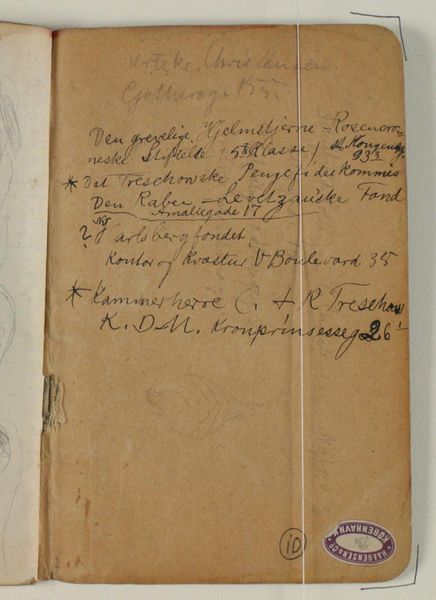 Urtekr. Christensen
Gothersge 155.
Den grevelige Hjelmstjerne-Rosencro-
neske Stiftelse (5te Klasse) St. Kongensg.
93 3
* Det Treschowske Fideikommis
Den Raben-Levetzauske Fond
Amaliegade 17
? Carlsbergfondet
Kontor og Kvæstur V Boulevard 35
* Kammerherre C. & R Treschow
K. D. M. Kronprinsesseg. 26
10
HAAGENSEN & Co
KØBENHAVN K